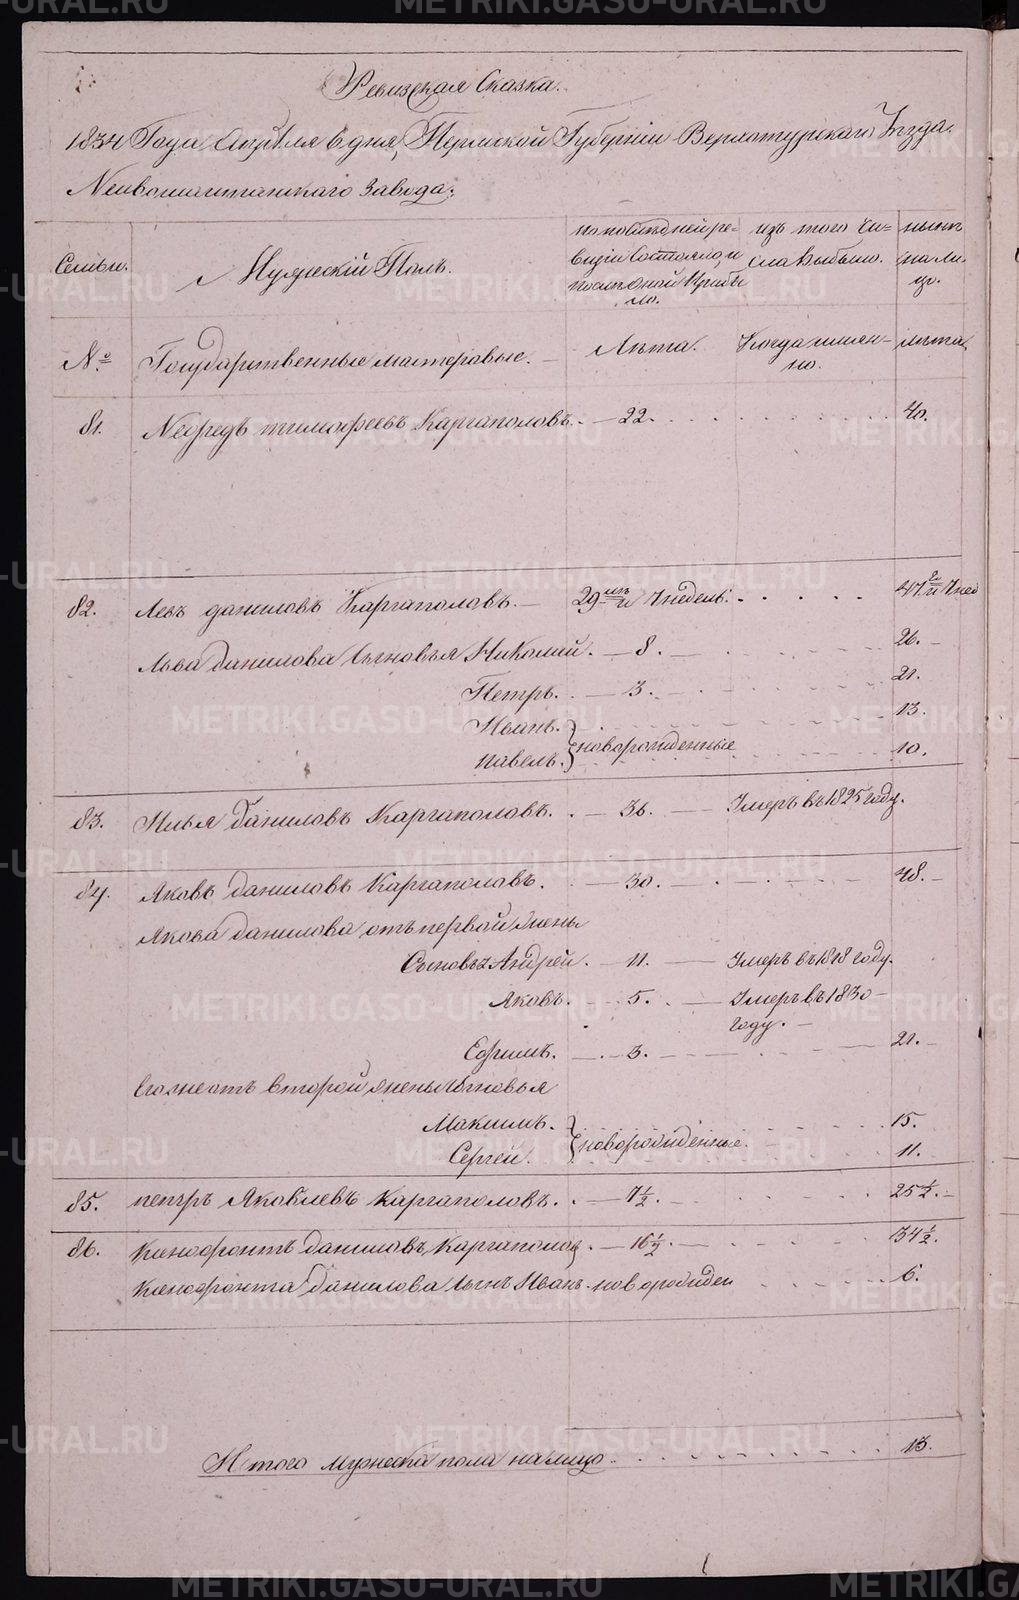 Ревизская Сказка.
1834 Года Апреля 6 дня, Пермской Губернiи Верхотурскаго Уезда.
Невьошаитанскаго Завода:
Семьи.
Мужескiй Полъ.
по последней ре-
визiи состояло, и
после оной прибы
ло.
изъ того чи-
сла выбыло.
ныне
на ли
цо.
№
Государственные мастеровые. —
Лета.
Когда имен-
но.
лета.
81. Медредъ тимофеевъ Каргаполовъ. — 22. 40.
82. Левъ даниловъ Каргаполовъ. — 29 летъ и 7 недель. 47 л и 7 нед
Льва данилова сыновья Николай. — 8. — 26. —
Петръ. — 3. — 21.
Иванъ. 13.
Павелъ. } новорожденные 10.
83. Илья Даниловъ Каргаполовъ. — 36. — Умеръ въ 1825 году.
84. Яковъ Даниловъ Каргаполовъ. — 30. 48. —
Якова Данилова отъ первой жены
Сыновья Андрей. — 11. — Умеръ въ 1818 году.
Яковъ. — 5. — Умеръ въ 1830 —
году. —
Ефимъ. — 3. — 21. —
Его же отъ второй жены сыновья
Максимъ. 15.
Сергей. } новорожденные. 11.
85. петръ Яковлевъ Каргаполовъ. — 7½. 25½. —
86. Ксенофонтъ Даниловъ Каргаполов. — 16½. — 34½.
Ксенофонта Данилова сынъ Иванъ — новорожден 6.
Итого мужеска пола на лицо 13.
METRIKI.GASO-URAL.RU